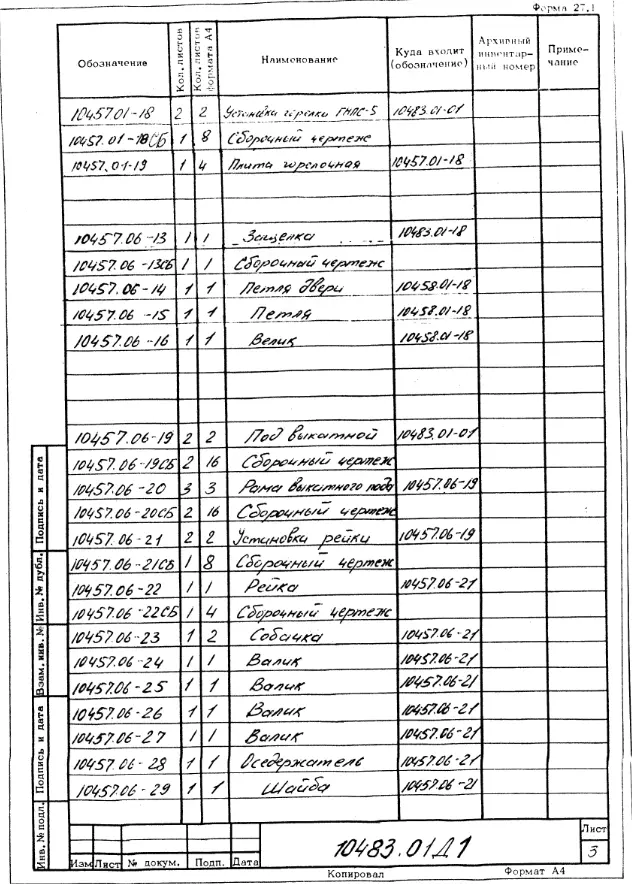 Форма 27.1
Обозначение Кол. листов Кол. листов формата А4 Наименование Куда входит (обозначение) Архивный инвентарный номер Примечание
10457.01-18 2 2 Установка горелки ГНПС-5 10483.01-01
10457.01-18СБ 1 8 Сборочный чертеж
10457.01-19 1 4 Плита горелочная 10457.01-18
10457.06-13 1 1 Защелка 10483.01-18
10457.06-13СБ 1 1 Сборочный чертеж
10457.06-14 1 1 Петля двери 10458.01-18
10457.06-15 1 1 Петля 10458.01-18
10457.06-16 1 1 Валик 10458.01-18
10457.06-19 2 2 Под выкатной 10483.01-01
10457.06-19СБ 2 16 Сборочный чертеж
10457.06-20 3 3 Рама выкатного пода 10457.06-19
10457.06-20СБ 2 16 Сборочный чертеж
10457.06-21 2 2 Установка рейки 10457.06-19
10457.06-21СБ 1 8 Сборочный чертеж
10457.06-22 1 1 Рейка 10457.06-21
10457.06-22СБ 1 4 Сборочный чертеж
10457.06-23 1 2 Собачка 10457.06-21
10457.06-24 1 1 Валик 10457.06-21
10457.06-25 1 1 Валик 10457.06-21
10457.06-26 1 1 Валик 10457.06-21
10457.06-27 1 1 Валик 10457.06-21
10457.06-28 1 1 Оседержатель 10457.06-21
10457.06-29 1 1 Шайба 10457.06-21
Подпись и дата
Инв. № дубл.
Взам. инв. №
Подпись и дата
Инв. № подл.
Изм Лист № докум. Подп. Дата
10483.01Д1
Лист
3
Копировал Формат А4